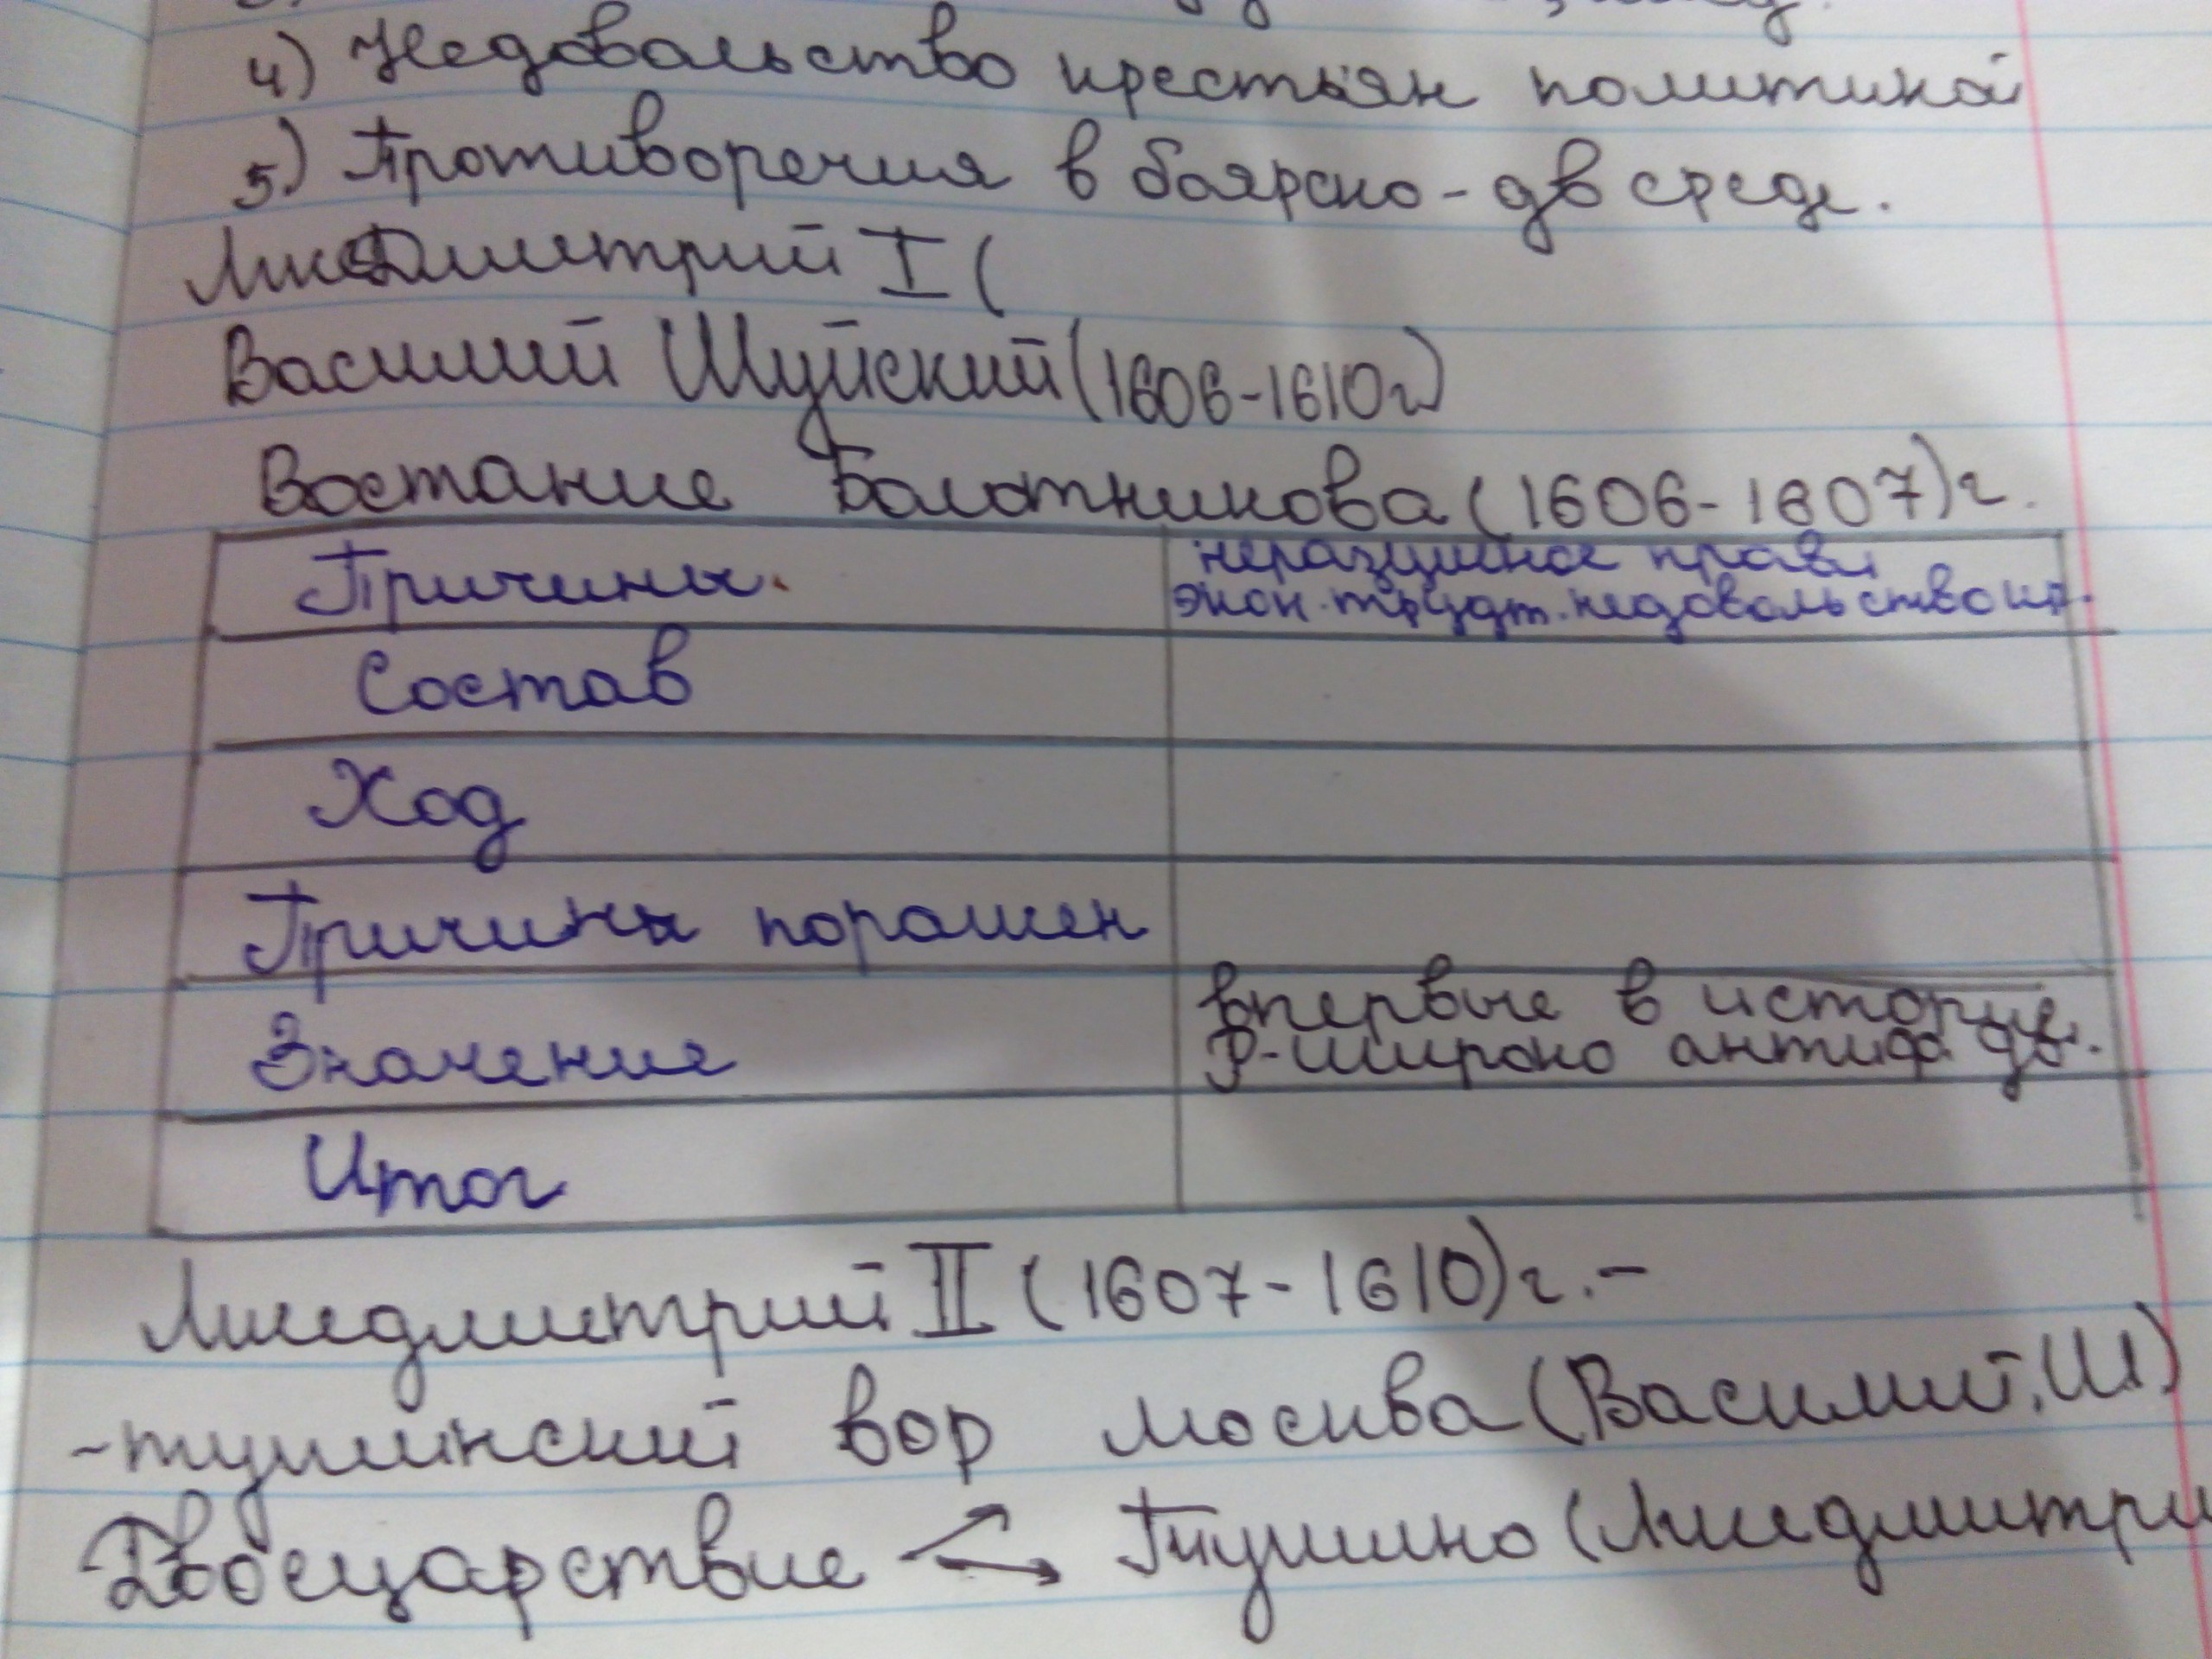 4) Недовольство крестьян политикой
5) Противоречия в боярско-дв среде.
Лжедмитрий I (
Василий Шуйский (1606-1610г)
Востание Болотникова (1606-1607)г.
Причины. неразумное правл
экон. трудт. недовольство кр.
Состав
Ход
Причины поражен
Значение впервые в истории
Р-широко антиф. дв.
Итог
Лжедмитрий II (1607-1610)г.-
-тушинский вор москва (Василий. Ш)
Двоецарствие Тушино (Лжедмитри